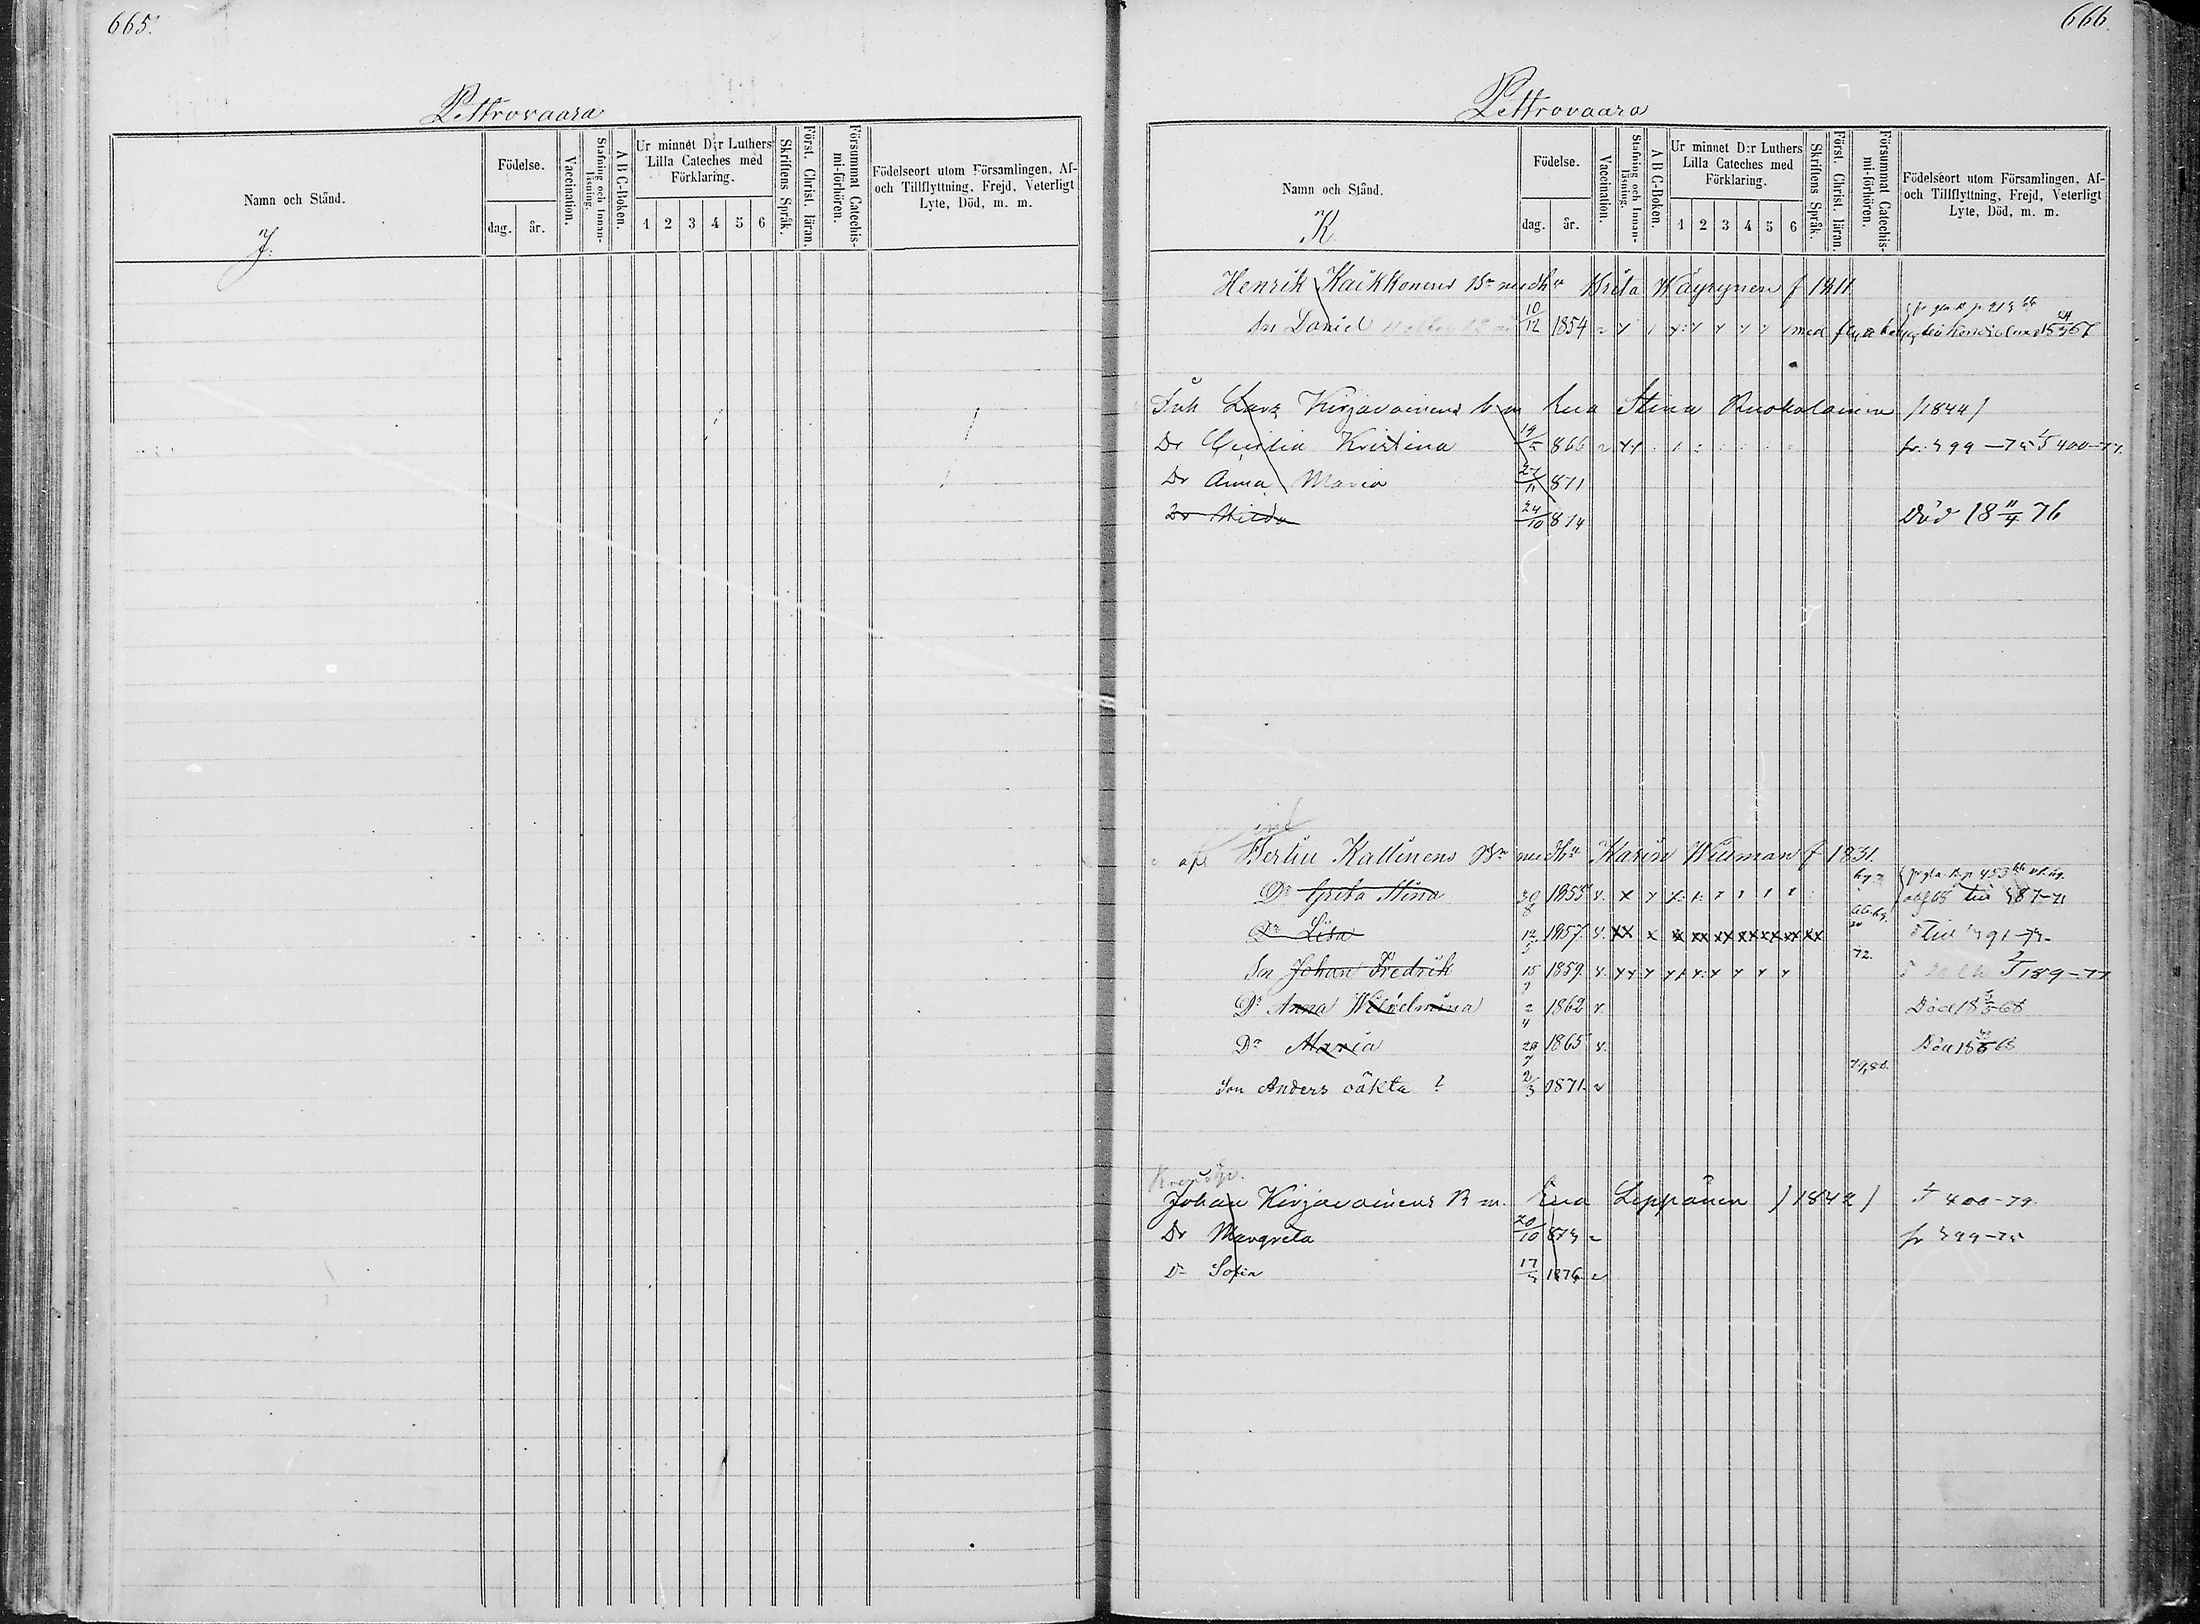 665.
Pettrovaara
Namn och Stånd.
J.
Födelse.
dag. år.
Vaccination.
Stafning och Innanläsning.
A B C-Boken.
Ur minnet D:r Luthers Lilla Cateches med Förklaring.
1 2 3 4 5 6
Skriftens Språk.
Först. Christ. läran.
Försummat Catechismi-förhören.
Födelseort utom Församlingen, Af- och Tillflyttning, Frejd, Veterligt Lyte, Död, m. m.
666.
Pettrovaara
Namn och Stånd.
K.
Födelse.
dag. år.
Vaccination.
Stafning och Innanläsning.
A B C-Boken.
Ur minnet D:r Luthers Lilla Cateches med Förklaring.
1 2 3 4 5 6
Skriftens Språk.
Först. Christ. läran.
Försummat Catechismi-förhören.
Födelseort utom Församlingen, Af- och Tillflyttning, Frejd, Veterligt Lyte, Död, m. m.
Henrik Kaikkonens Bn med hu Brita Wäyrynen f 1811
Sn Daniel 10/12 1854 med
Inh Lars Kirjavainens b m Eva Stina Ruokolainen /1844/
Dr Cecilia Kristina 866 fr. 399-75 400-77
Dr Anna Maria 871
Dr Hilda 24/10 874 Död 18 11/4 76
Bertil Kallinens Bn med hu Karin Willman f 1831.
Dr Greta Stina 30/8 1855 v. till 387-71
Dr Lisa 1857 v. till 391-72
Sn Johan Fredrik 15 1859 v. 72. 189-77
Dr Anna Wilhelmina 2/4 1862 v. Död 68
Dr Maria 1865 v. Död
Son Anders oäkta 2/3 1871
79,80.
Johan Kirjavainens B m. Eva Leppänen /1842/ 400-79
Dr Margreta 20/10 873 fr 399-75
Dr Sofia 1876